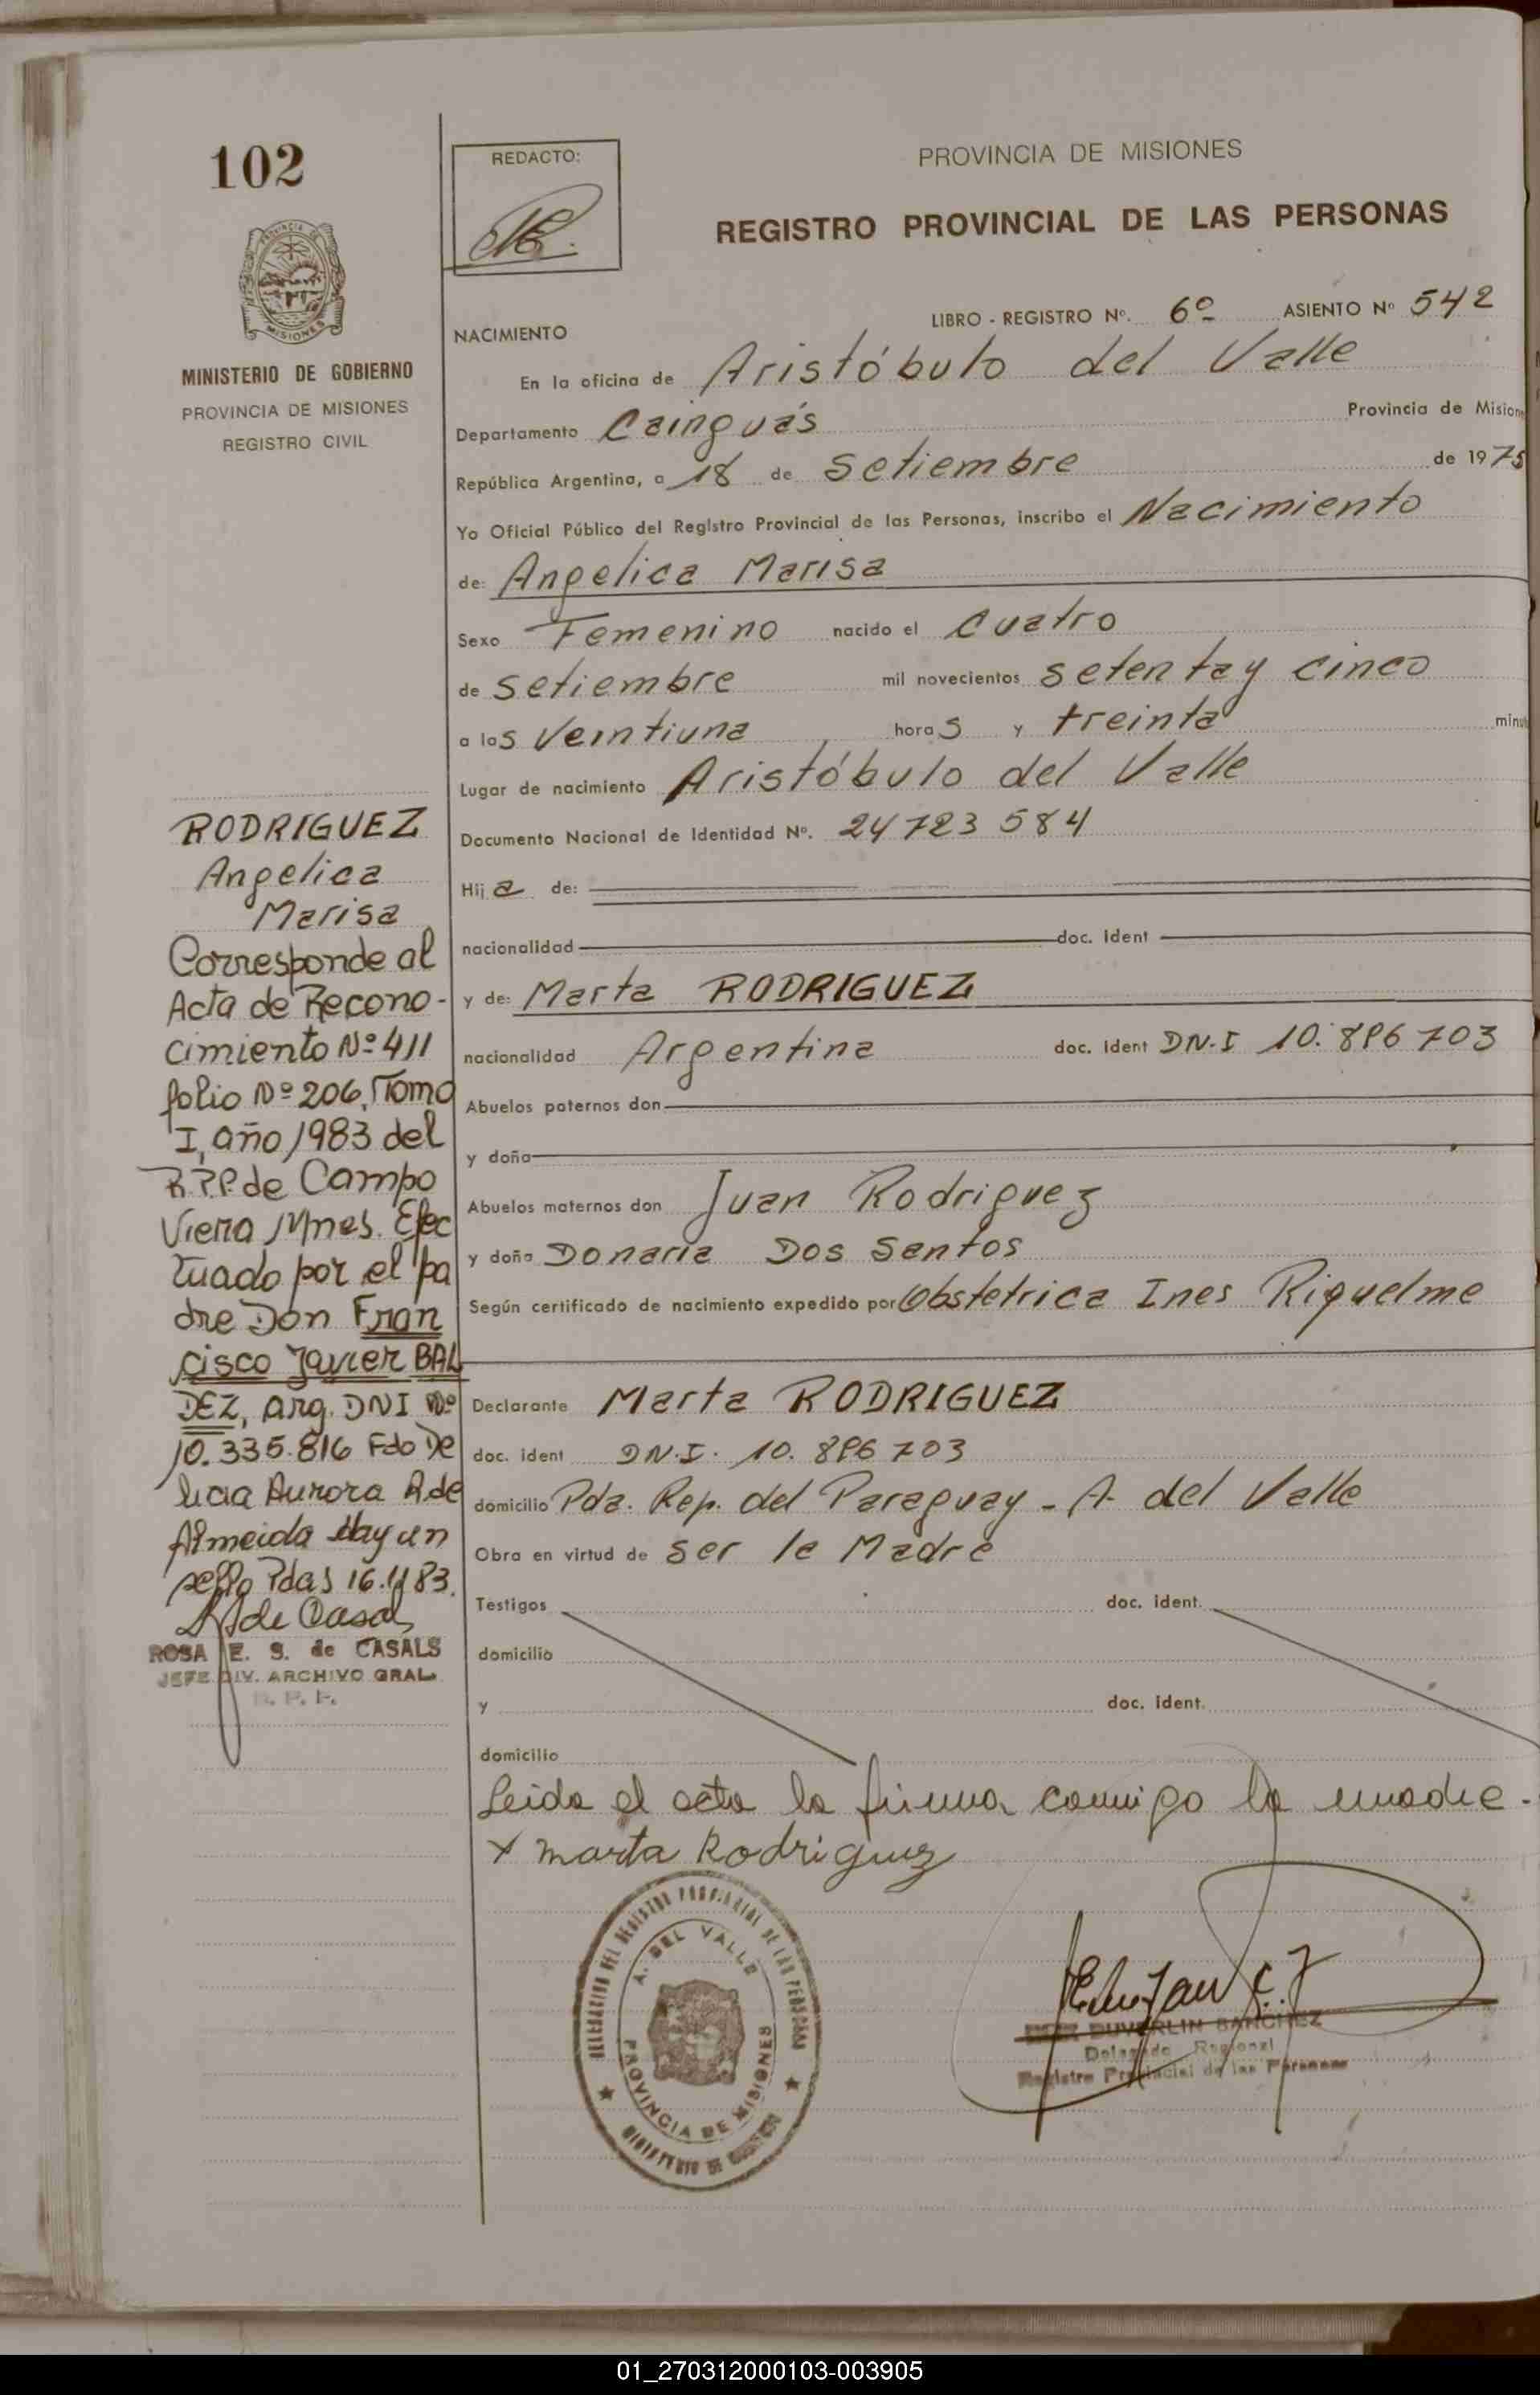 102
REDACTO:
PROVINCIA DE MISIONES
REGISTRO PROVINCIAL DE LAS PERSONAS
PROVINCIA DE
MISIONES
MINISTERIO DE GOBIERNO
PROVINCIA DE MISIONES
REGISTRO CIVIL
LIBRO - REGISTRO Nº. 6º ASIENTO Nº 542
NACIMIENTO
En la oficina de Aristóbulo del Valle
Departamento Cainguás Provincia de Misione
República Argentina, a 18 de Setiembre de 1975
Yo Oficial Público del Registro Provincial de las Personas, inscribo el Nacimiento
de: Angelica Marisa
Sexo Femenino nacido el Cuatro
de Setiembre mil novecientos setenta y cinco
a las Veintiuna horas y treinta minut
Lugar de nacimiento Aristóbulo del Valle
Documento Nacional de Identidad Nº. 24723584
Hija de:
nacionalidad doc. ident
y de: Marta RODRIGUEZ
nacionalidad Argentina doc. ident DN.I 10.896703
Abuelos paternos don
y doña
Abuelos maternos don Juan Rodriguez
y doña Donaria Dos Santos
Según certificado de nacimiento expedido por Obstetrica Ines Riquelme
Declarante Marta RODRIGUEZ
doc. ident DN.I. 10.896703
domicilio Pda. Rep. del Paraguay - A. del Valle
Obra en virtud de ser la Madre
Testigos doc. ident.
domicilio
y doc. ident.
domicilio
Leida el acta la firma conmigo la madre.
x Marta Rodriguez
RODRIGUEZ
Angelica
Marisa
Corresponde al
Acta de Recono-
cimiento Nº 411
folio Nº 206, Tomo
I, año 1983 del
R.P.P. de Campo
Viera Mnes. Efec
tuado por el pa
dre Don Fran
cisco Javier BAL
DEZ, Arg. DNI Nº
10.335.816 Fdo De
licia Aurora R. de
Almeida Hay un
sello Pdas 16.11.83.
ROSA E. S. de CASALS
JEFE DIV. ARCHIVO GRAL.
R. P. P.
DELEGACION DEL REGISTRO PROVINCIAL DE LAS PERSONAS
A. DEL VALLE
PROVINCIA DE MISIONES
MINISTERIO DE GOBIERNO
DUVERLIN SANCHEZ
Delegado Regional
Registro Provincial de las Personas
01_270312000103-003905